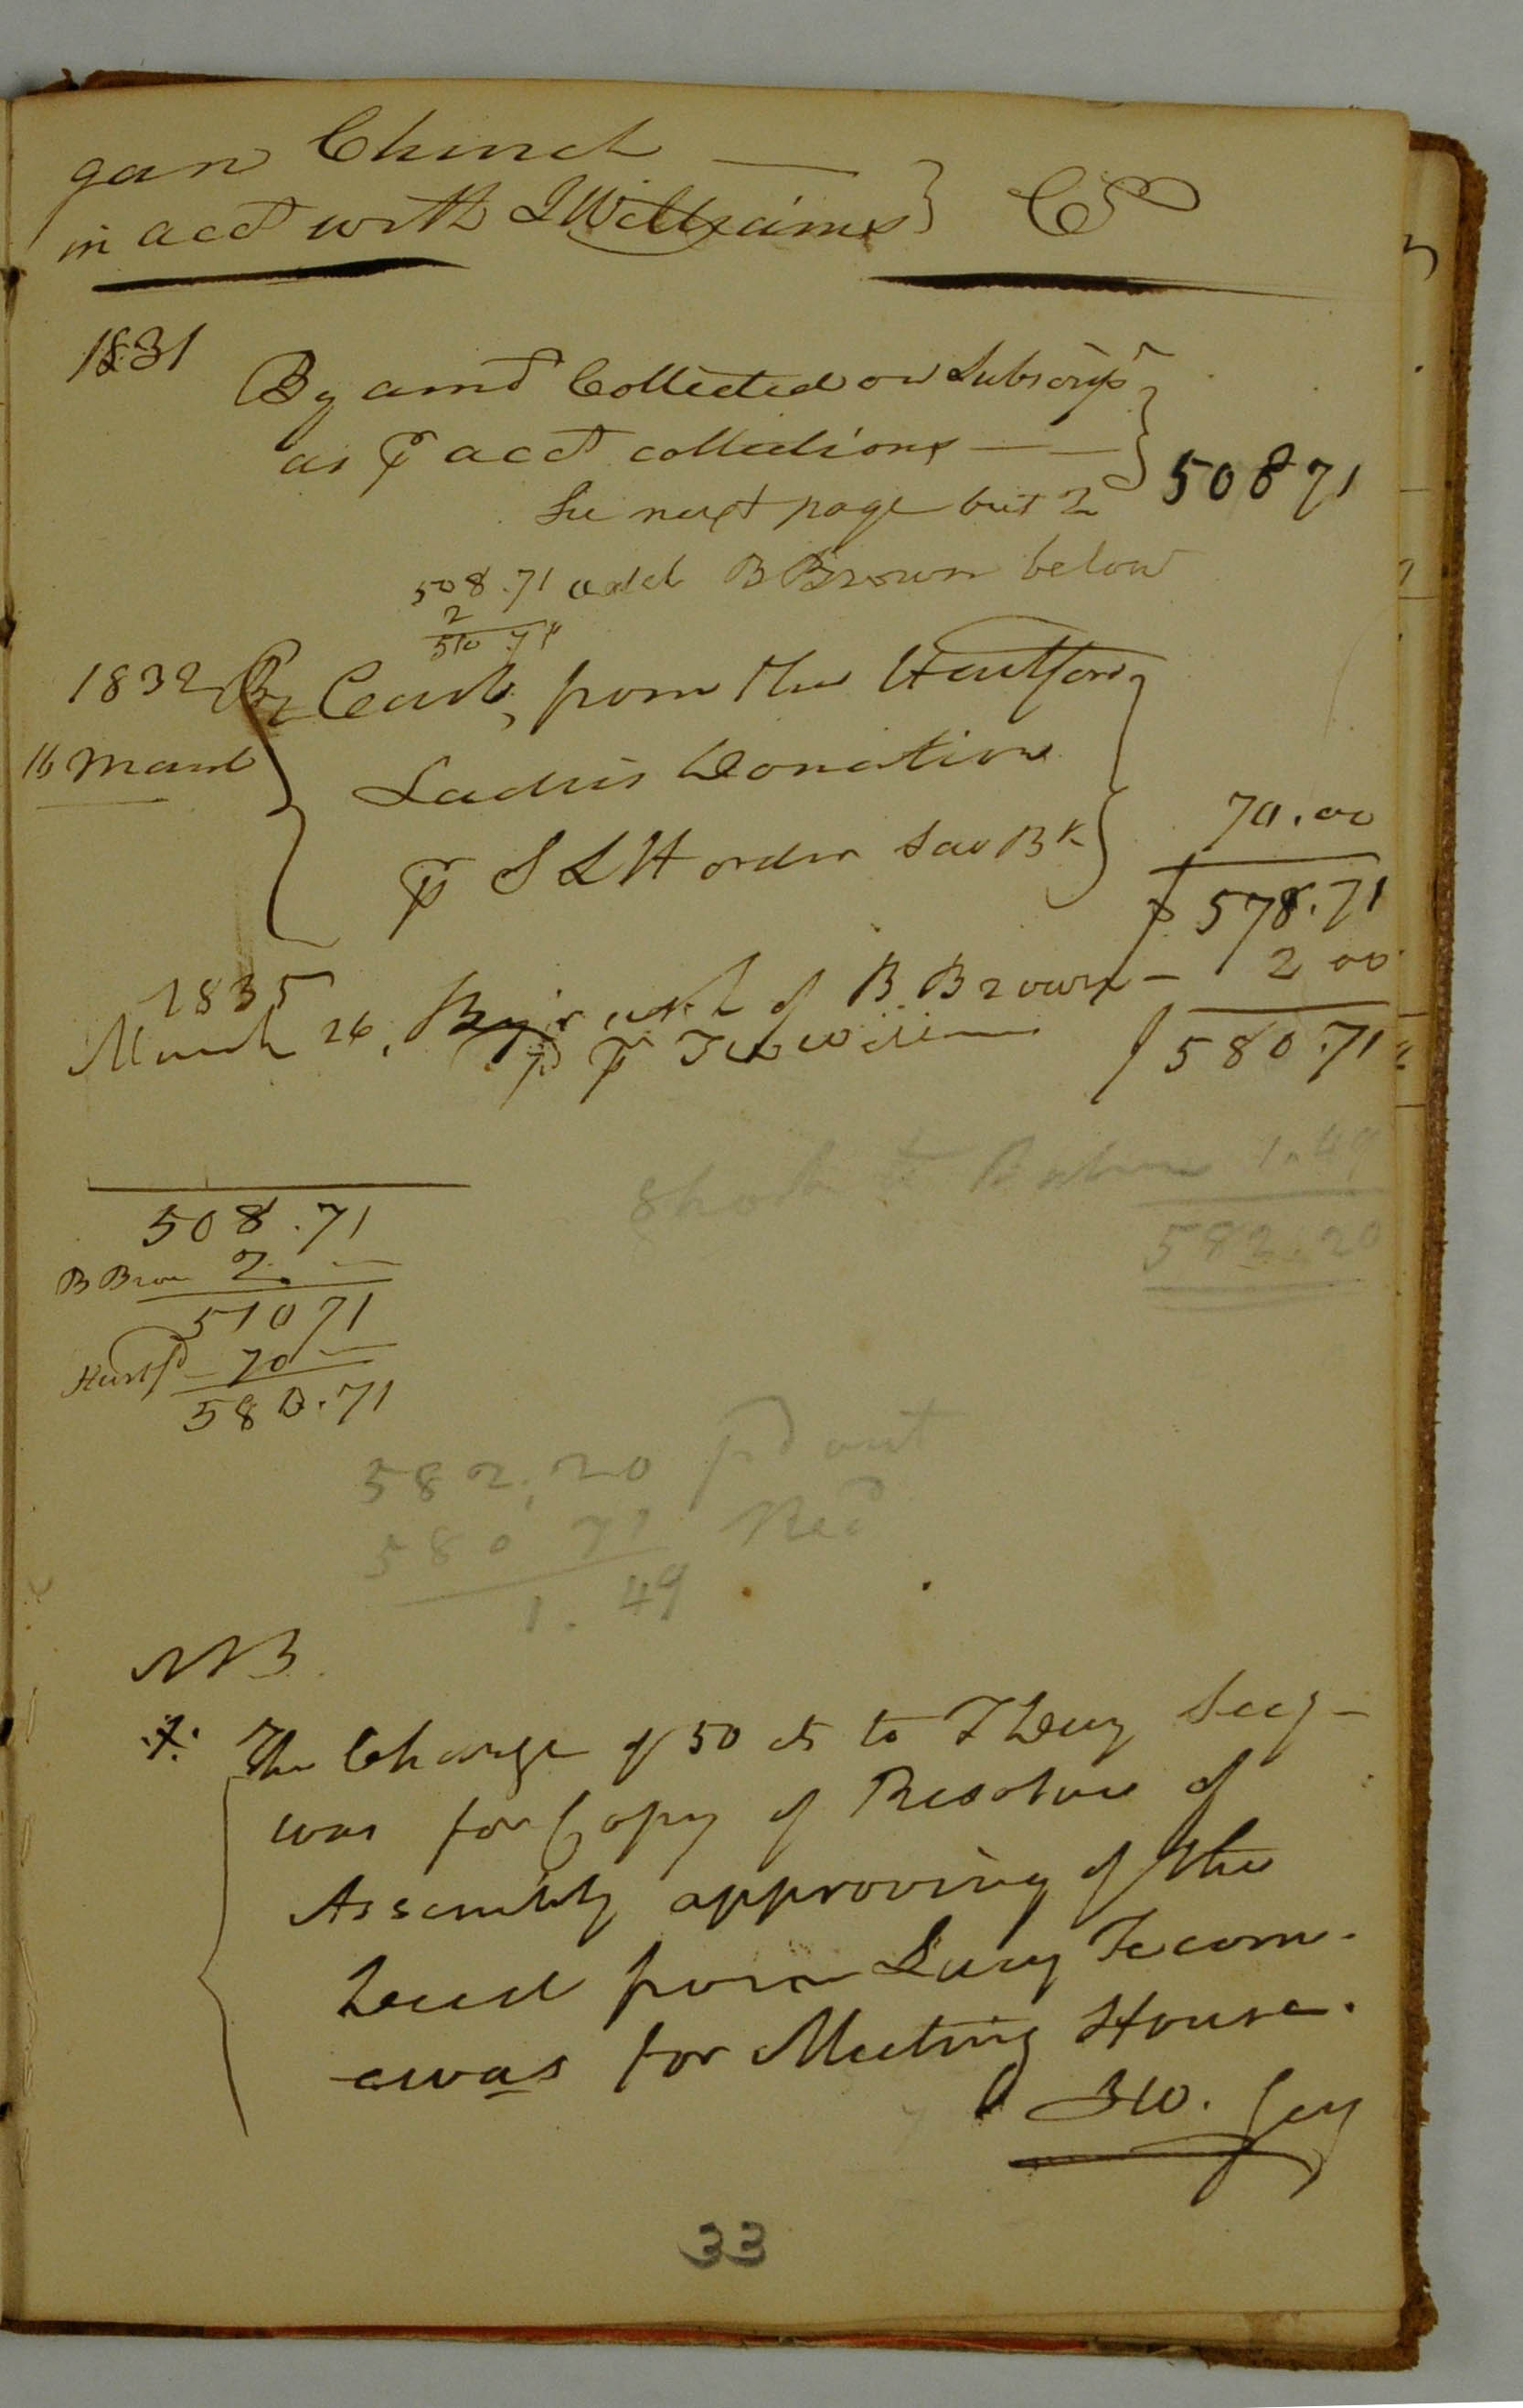 gan Church —
in acct with J Williams } Cr
1831
By amt Collected on Subscript
as ⅌ acct collections — — } 508 71
See next page but 2
508.71 add B Brown below
2
510.71
1832 By Cash, from the Hartford
16 March
Ladies Donation
⅌ S L H order Sav Bk } 70.00
$ 578.71
1835
March 26, By of B. Brown — 2 00
⅌
$ 580.71
1.49
582.20
508.71
B Brow 2. —
510 71
Hartfd — 70 —
580.71
582.20 pd out
580 71 Recd
1.49
NB
The Charge of 50 cts to T Day Secy —
was for Copy of Resolve of
Assembly approving of the
Deed from Lucy Tecom-
-awas for Meeting House.
JW. Secy
33